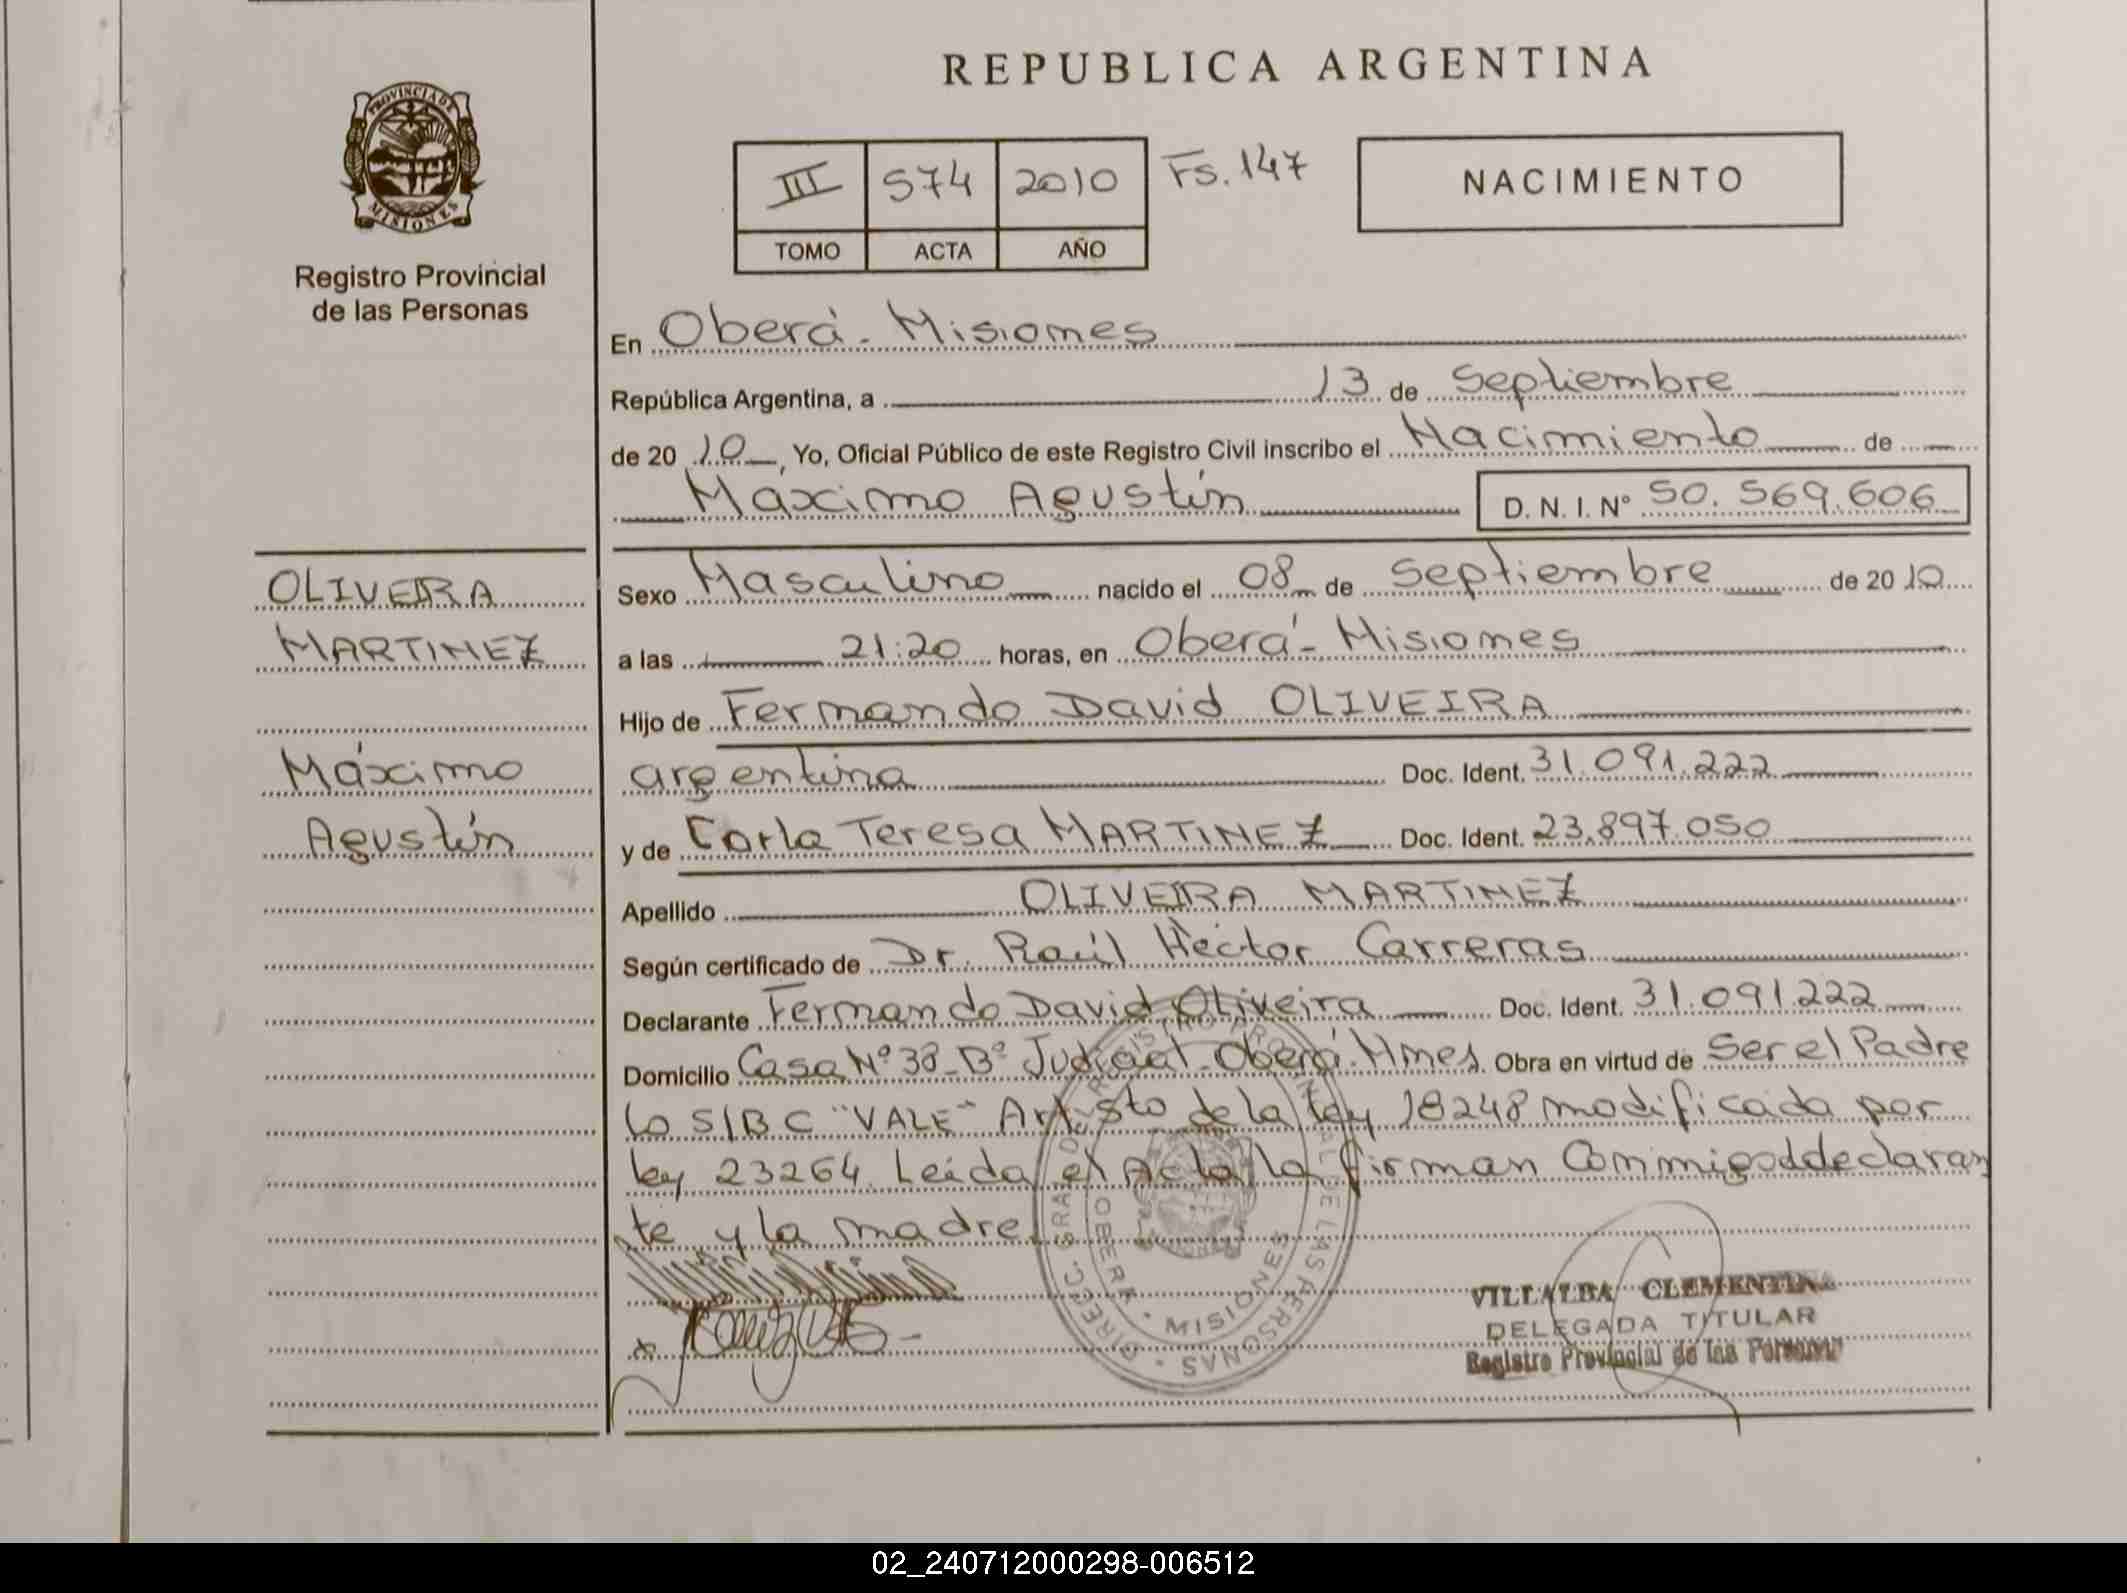 REPUBLICA ARGENTINA
PROVINCIA DE
MISIONES
Registro Provincial
de las Personas
III 574 2010 Fs. 147
TOMO ACTA AÑO
NACIMIENTO
En Oberá - Misiones
República Argentina, a 13 de Septiembre
de 20 10, Yo, Oficial Público de este Registro Civil inscribo el Nacimiento de
Máximo Agustín D. N. I. Nº 50.569.606
OLIVEIRA
MARTINEZ
Máximo
Agustín
Sexo Masculino nacido el 08 de Septiembre de 20 10
a las 21:20 horas, en Oberá - Misiones
Hijo de Fernando David OLIVEIRA
argentina Doc. Ident. 31.091.222
y de Carla Teresa MARTINEZ Doc. Ident. 23.897.050
Apellido OLIVEIRA MARTINEZ
Según certificado de Dr. Raúl Héctor Carreras
Declarante Fernando David Oliveira Doc. Ident. 31.091.222
Domicilio Casa Nº 38 - Bº Judicial - Oberá. Mnes. Obra en virtud de Ser el Padre
Lo S/B C "VALE" Art. 5to de la ley 18248 modificada por
ley 23264. Leída el Acta la firman Conmigo declaran
te y la madre
DIRECC. GRAL. DEL REGISTRO PROVINCIAL DE LAS PERSONAS
OBERA - MISIONES
VILLALBA CLEMENTINA
DELEGADA TITULAR
Registro Provincial de las Personas
02_240712000298-006512